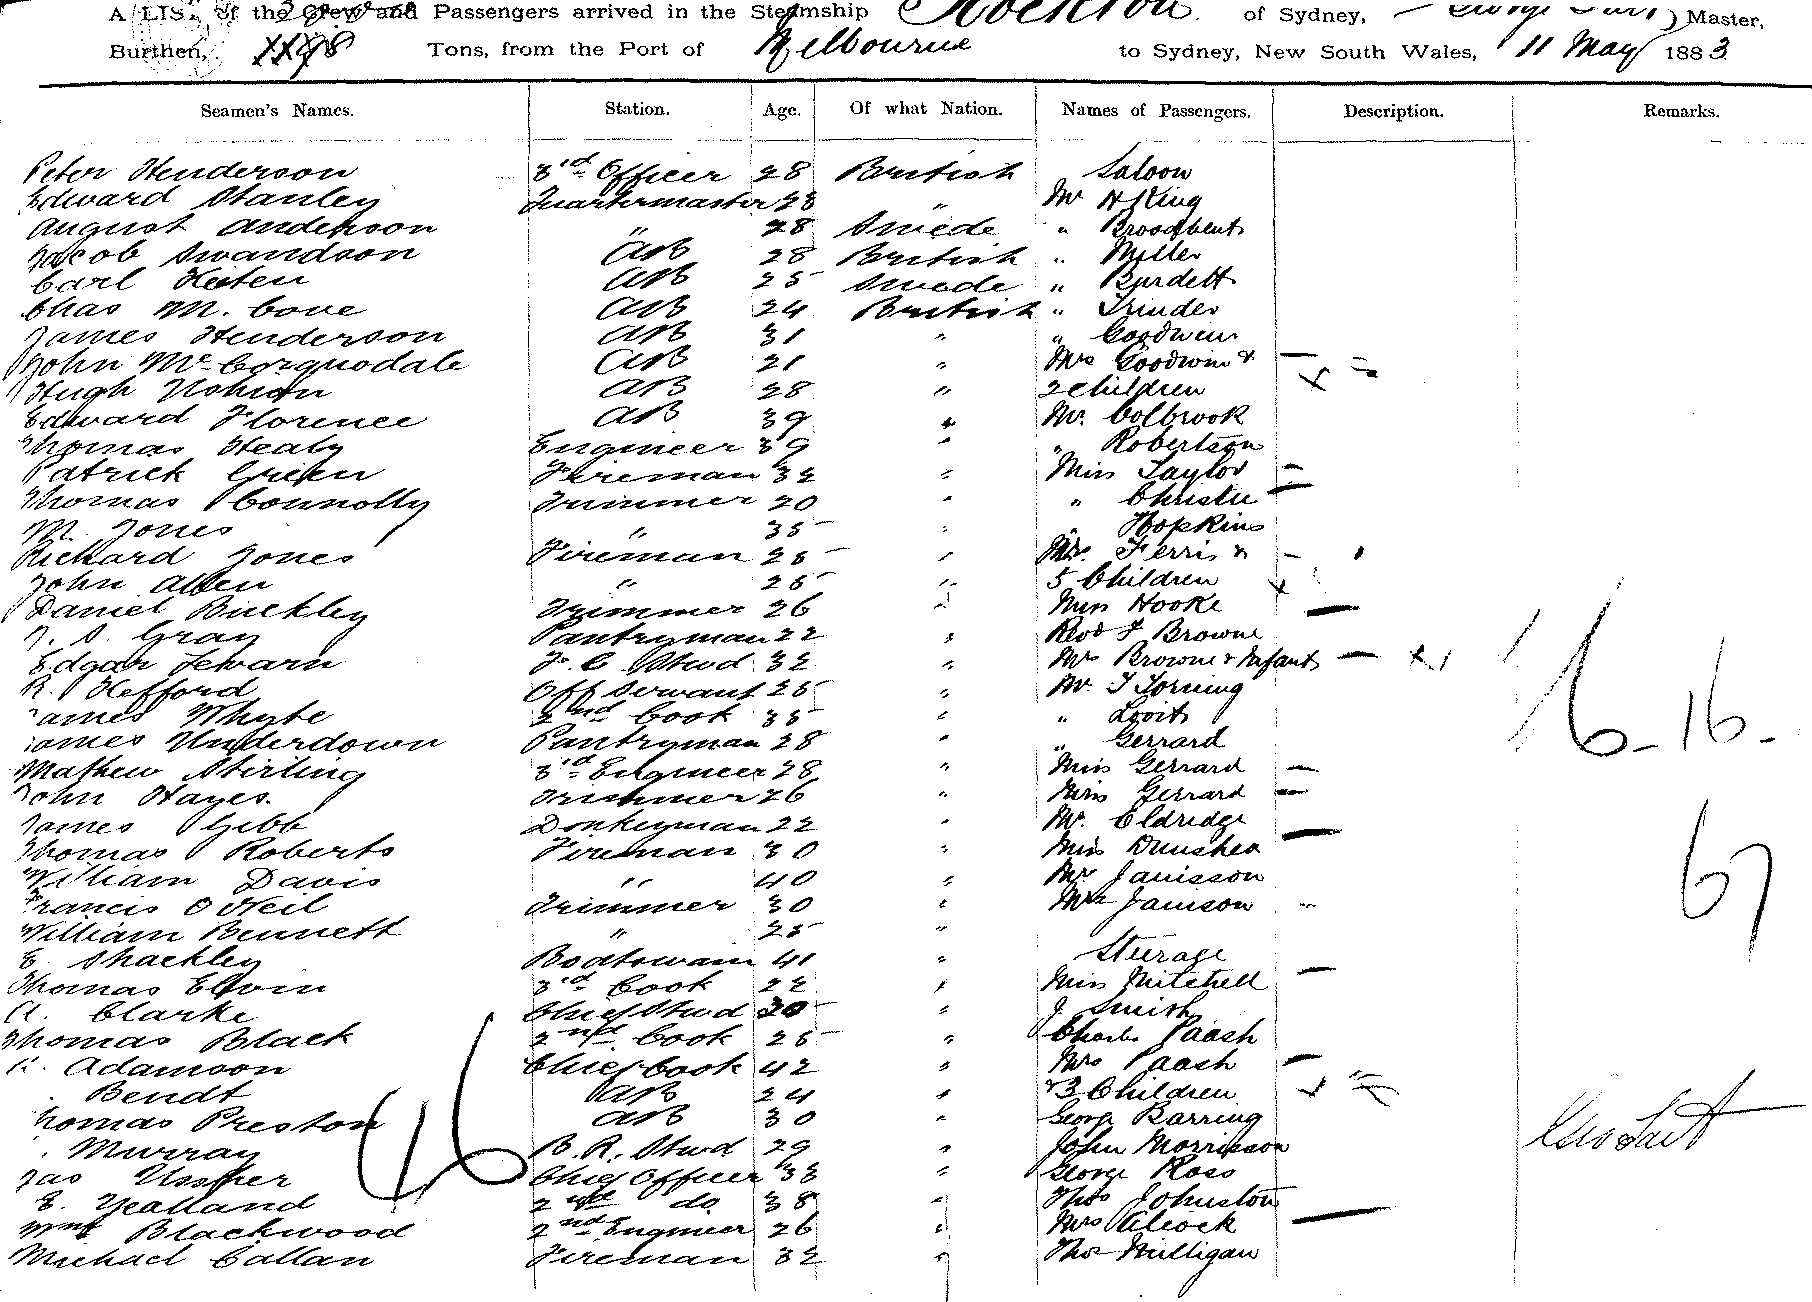 A LIST of the Crew and Passengers arrived in the Steamship Rockton of Sydney, Master,
Burthen, Tons, from the Port of Melbourne to Sydney, New South Wales, 11 May 1883
Seamen's Names. Station. Age. Of what Nation. Names of Passengers. Description. Remarks.
Peter Henderson 3rd Officer 28 British Saloon
Edward Stanley Quartermaster 28 " Mr H King
August Anderson " 28 Swede " Broadbent
Jacob Swandson AB 28 British " Miller
Carl AB 25 Swede " Burdett
Chas M. Cove AB 24 British " Trinder
James Henderson AB 31 " " Goodwin
John McCorquodale AB 21 " Mrs Goodwin &
Hugh AB 28 " 2 Children
Edward Florence AB 39 " Mr. Colbrook
Thomas Healy Engineer 39 " " Robertson
Patrick Green Fireman 32 " Miss Taylor
Thomas Connolly Trimmer 20 " " Christie
M. Jones " 35 " " Hopkins
Richard Jones Fireman 25 " Mrs. Ferris &
John Allen " 25 " 5 Children
Daniel Buckley Trimmer 26 " Miss Hooke
J. S. Gray Pantryman 22 " Revd F Browne
Edgar F. C. Stwd. 32 " Mrs Browne & Infant
R. Hefford Off Servant 25 " Mr. T Torning
James Whyte 2nd Cook 35 " "
James Underdown Pantryman 28 " " Gerrard
Mathew Stirling 3rd Engineer 28 " Miss Gerrard
John Hayes. Trimmer 26 " Miss Gerrard
James Gibb Donkeyman 22 " Mr. Eldridge
Thomas Roberts Fireman 30 " Miss Dunshea
William Davis " 40 " Mr Janisson
Francis O Neil Trimmer 30 " Mrs Janison
William Bennett " 25 "
E. Shackley Boatswain 41 " Steerage
Thomas Elvin 3rd Cook 22 " Miss Mitchell
A. Clarke Chief Stwd 30 " J Smith
Thomas Black 2nd Cook 25 " Charles Paash
R. Adamson Chief Cook 42 " Mrs Paash
Bendt AB 24 " & 3 Children
Thomas Preston AB 30 " George Barring
Murray B. R. Stwd 29 " John Morrisson
Jas Ussher Chief Officer 33 " George Ross
E. Yealland 2nd do 38 " Thos Johnston
Wm Blackwood 2nd Engineer 26 " Mrs Alcock
Michael Callan Fireman 32 " Thos Milligan
16
46